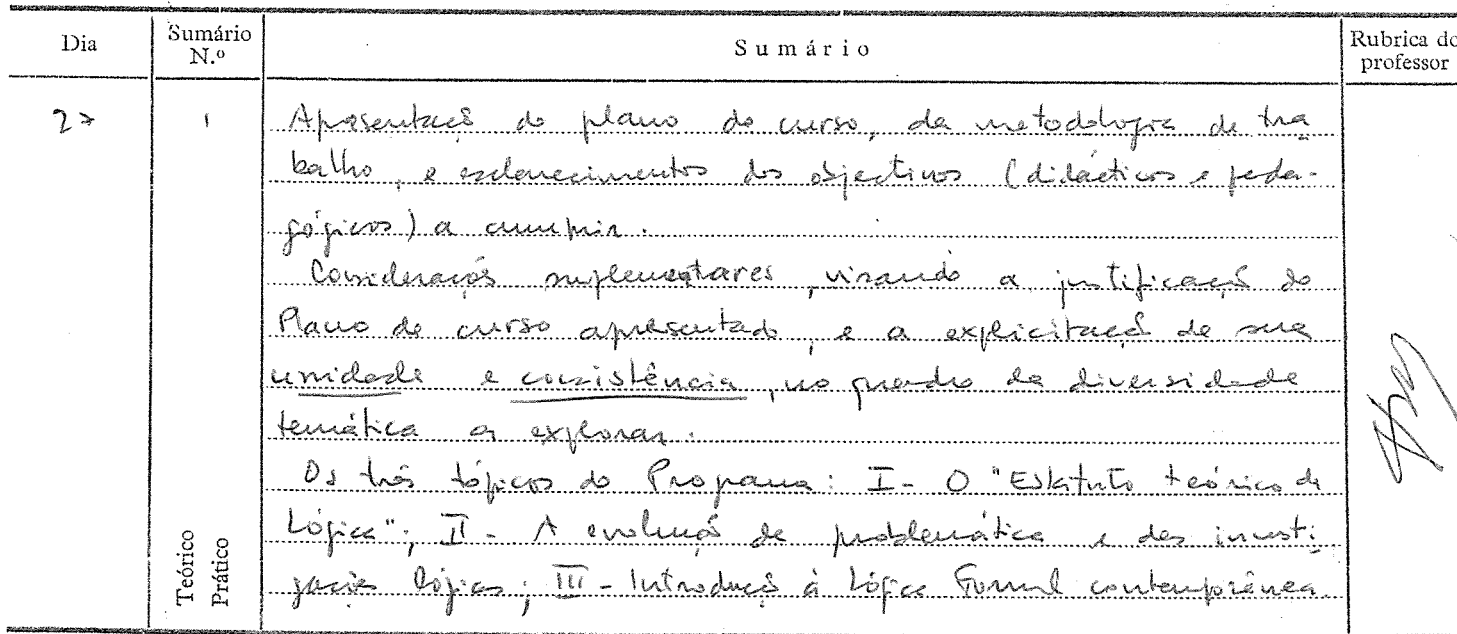 Dia
Sumário N.º
Sumário
Rubrica do professor
27
1
Apresentação do plano do curso, da metodologia de tra
balho, e esclarecimentos dos objectivos (didácticos e peda-
gógicos) a cumprir.
Considerações suplementares, visando a justificação do
Plano de curso apresentado, e a explicitação de sua
unidade e consistência, no quadro da diversidade
temática a explorar.
Os três tópicos do Programa: I - O "Estatuto teórico da
Lógica"; II - A evolução da problemática e das investi-
gações lógicas; III - Introdução à Lógica Formal contemporânea.
Teórico
Prático